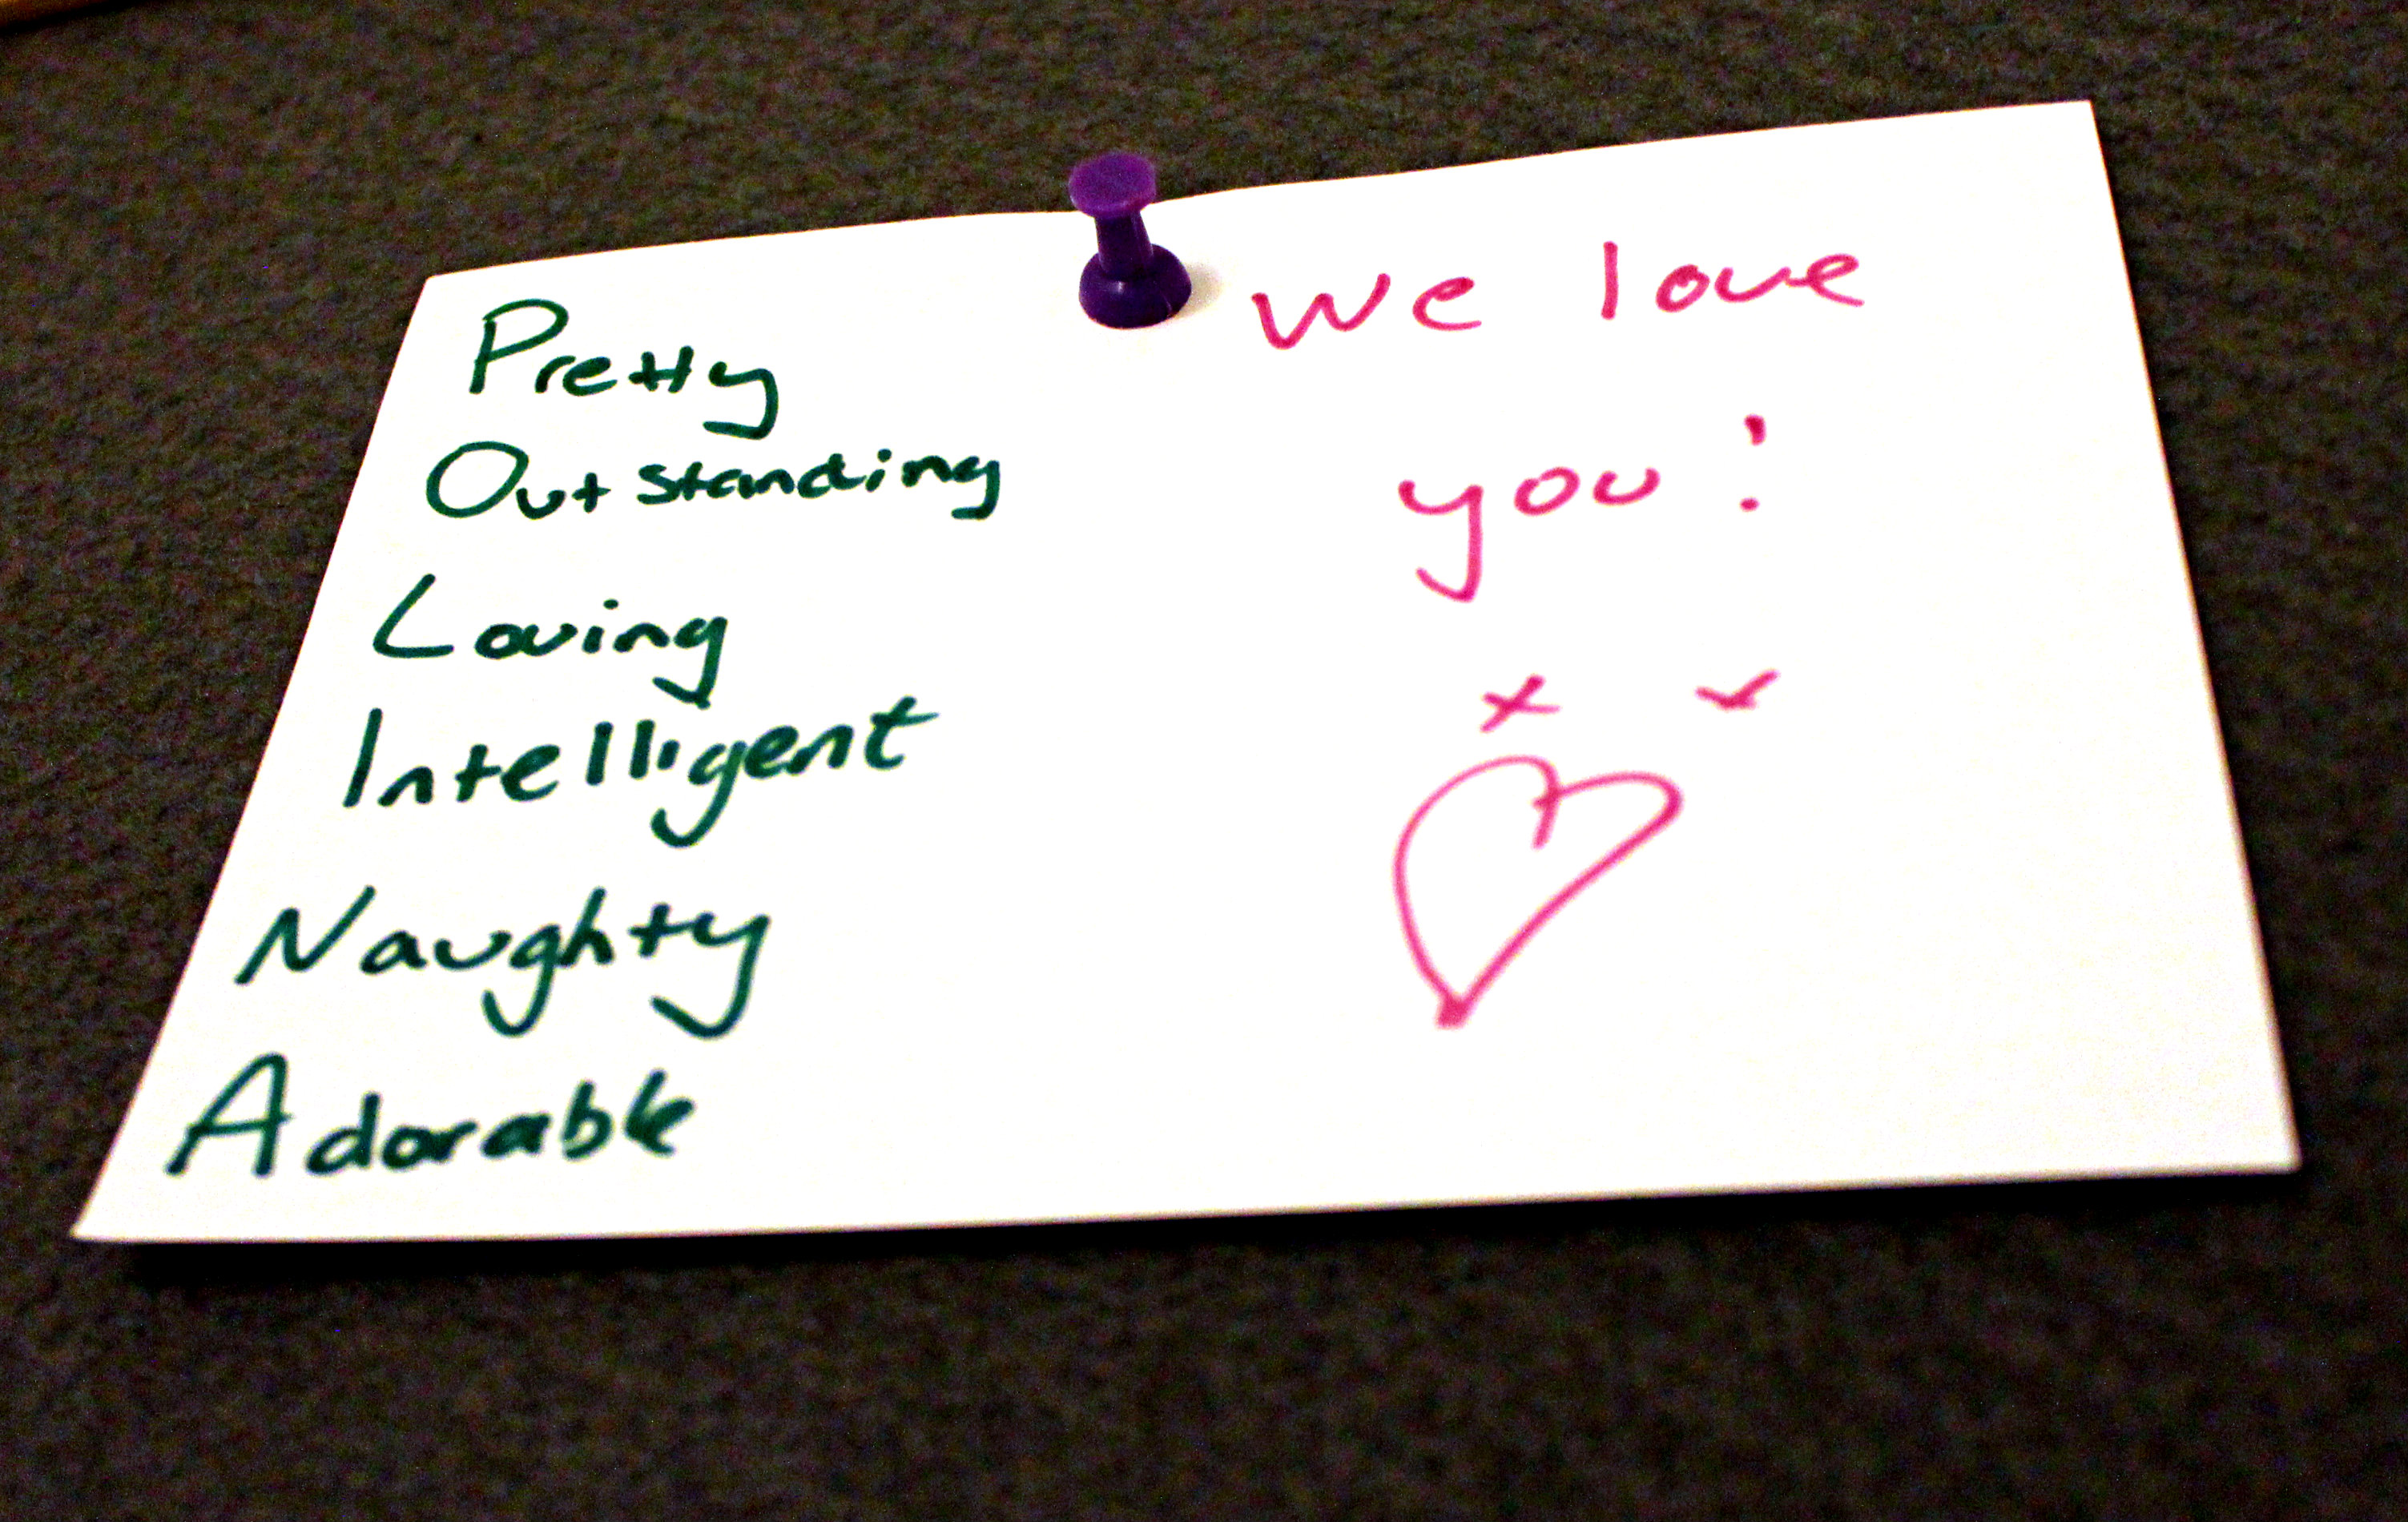 Pretty
Outstanding
Loving
Intelligent
Naughty
Adorable
We love
you!
x x